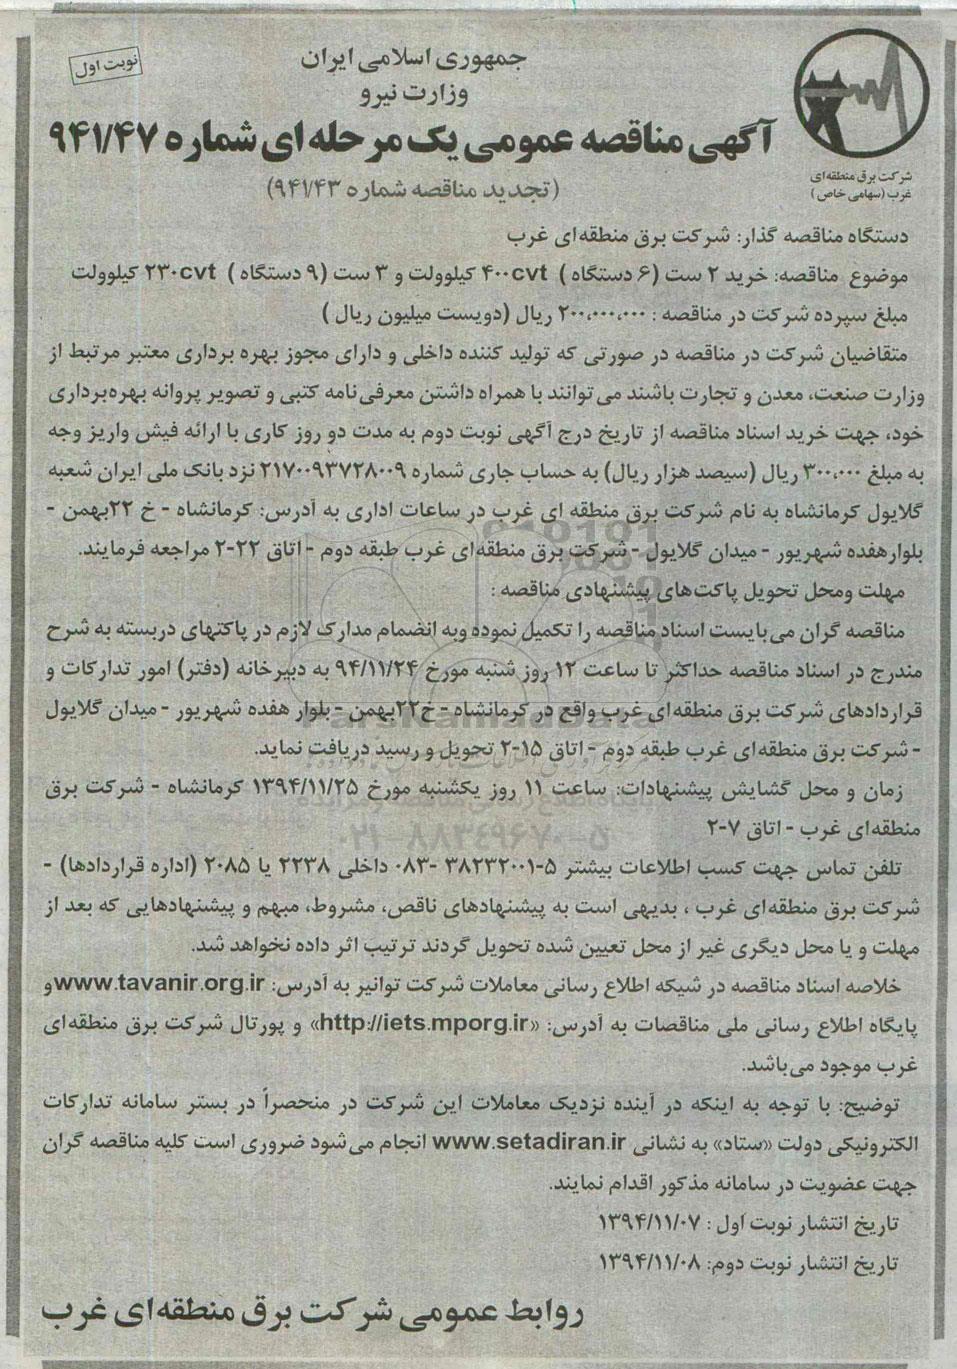 نوبت اول
جمهوری اسلامی ایران
وزارت نیرو
آگهی مناقصه عمومی یک مرحله ای شماره ۹۴۱/۴۷
(تجدید مناقصه شماره ۹۴۱/۴۳)
شرکت برق منطقه‌ای
غرب (سهامی خاص)
دستگاه مناقصه گذار: شرکت برق منطقه‌ای غرب
موضوع مناقصه: خرید ۲ ست (۶ دستگاه ) ۴۰۰cvt کیلوولت و ۳ ست (۹ دستگاه ) ۲۳۰cvt کیلوولت
مبلغ سپرده شرکت در مناقصه : ۲۰۰،۰۰۰،۰۰۰ ریال (دویست میلیون ریال )
متقاضیان شرکت در مناقصه در صورتی که تولید کننده داخلی و دارای مجوز بهره برداری معتبر مرتبط از
وزارت صنعت، معدن و تجارت باشند می‌توانند با همراه داشتن معرفی‌نامه کتبی و تصویر پروانه بهره‌برداری
خود، جهت خرید اسناد مناقصه از تاریخ درج آگهی نوبت دوم به مدت دو روز کاری با ارائه فیش واریز وجه
به مبلغ ۳۰۰،۰۰۰ ریال (سیصد هزار ریال) به حساب جاری شماره ۲۱۷۰۰۹۳۷۲۸۰۰۹ نزد بانک ملی ایران شعبه
گلایول کرمانشاه به نام شرکت برق منطقه ای غرب در ساعات اداری به آدرس: کرمانشاه - خ ۲۲بهمن -
بلوارهفده شهریور - میدان گلایول - شرکت برق منطقه‌ای غرب طبقه دوم - اتاق ۲۲-۲ مراجعه فرمایند.
مهلت ومحل تحویل پاکت‌های پیشنهادی مناقصه :
مناقصه گران می‌بایست اسناد مناقصه را تکمیل نموده وبه انضمام مدارک لازم در پاکتهای دربسته به شرح
مندرج در اسناد مناقصه حداکثر تا ساعت ۱۲ روز شنبه مورخ ۹۴/۱۱/۲۴ به دبیرخانه (دفتر) امور تدارکات و
قراردادهای شرکت برق منطقه‌ای غرب واقع در کرمانشاه - خ۲۲بهمن - بلوار هفده شهریور - میدان گلایول
- شرکت برق منطقه‌ای غرب طبقه دوم - اتاق ۱۵-۲ تحویل و رسید دریافت نماید.
زمان و محل گشایش پیشنهادات: ساعت ۱۱ روز یکشنبه مورخ ۱۳۹۴/۱۱/۲۵ کرمانشاه - شرکت برق
منطقه‌ای غرب - اتاق ۷-۲
۰۲۱-۸۸۳۴۹۶۷۰-۵
تلفن تماس جهت کسب اطلاعات بیشتر ۵-۳۸۲۳۲۰۰۱ -۰۸۳ داخلی ۲۲۳۸ یا ۲۰۸۵ (اداره قراردادها) -
شرکت برق منطقه‌ای غرب ، بدیهی است به پیشنهادهای ناقص، مشروط، مبهم و پیشنهادهایی که بعد از
مهلت و یا محل دیگری غیر از محل تعیین شده تحویل گردند ترتیب اثر داده نخواهد شد.
خلاصه اسناد مناقصه در شبکه اطلاع رسانی معاملات شرکت توانیر به آدرس: www.tavanir.org.irو
پایگاه اطلاع رسانی ملی مناقصات به آدرس: «http://iets.mporg.ir» و پورتال شرکت برق منطقه‌ای
غرب موجود می‌باشد.
توضیح: با توجه به اینکه در آینده نزدیک معاملات این شرکت در منحصراً در بستر سامانه تدارکات
الکترونیکی دولت «ستاد» به نشانی www.setadiran.ir انجام می‌شود ضروری است کلیه مناقصه گران
جهت عضویت در سامانه مذکور اقدام نمایند.
تاریخ انتشار نوبت اول : ۱۳۹۴/۱۱/۰۷
تاریخ انتشار نوبت دوم: ۱۳۹۴/۱۱/۰۸
روابط عمومی شرکت برق منطقه‌ای غرب